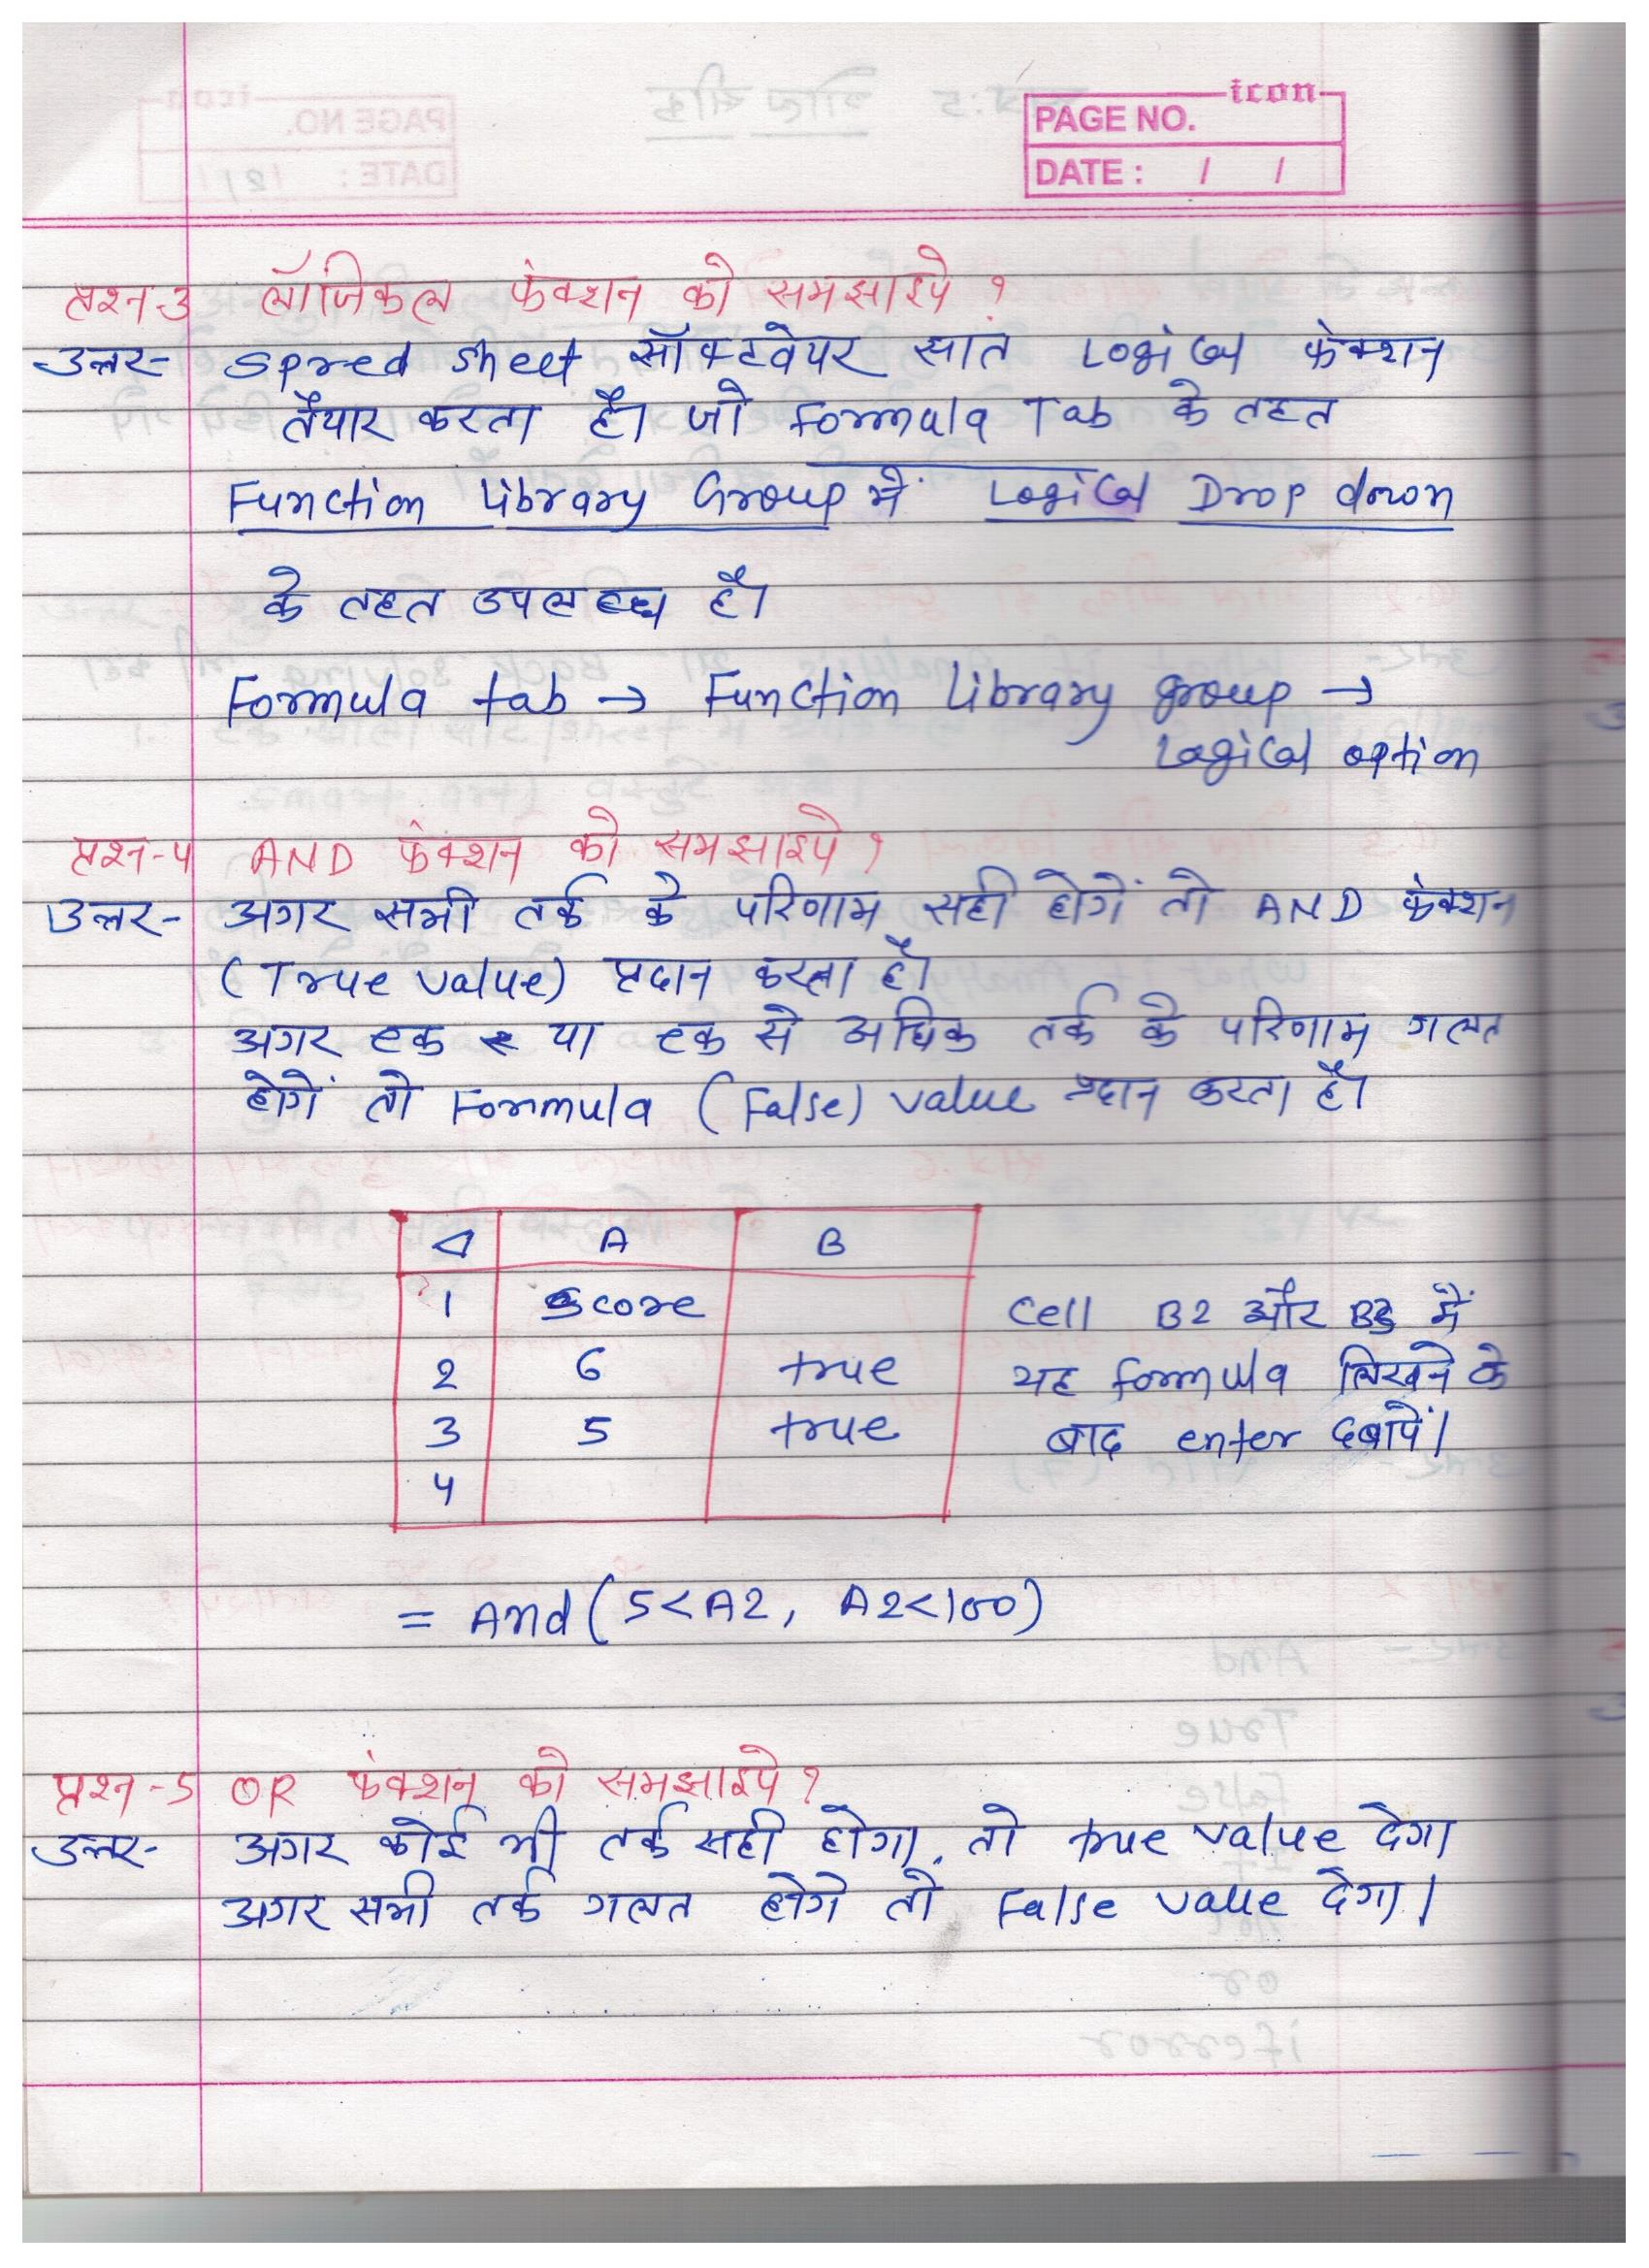 icon
PAGE NO.
DATE : / /
प्रश्न-3 लॉजिकल फंक्शन को समझाइये ?
उत्तर- Spred sheet सॉफ्टवेयर सात Logical फंक्शन
तैयार करता है। जो Formula Tab के तहत
Function Library Group में Logical Drop down
के तहत उपलब्ध है।
Formula tab → Function Library group →
Logical option
प्रश्न-4 AND फंक्शन को समझाइये ?
उत्तर- अगर सभी तर्क के परिणाम सही होगें तो AND फंक्शन
(True value) प्रदान करता है।
अगर एक या एक से अधिक तर्क के परिणाम गलत
होगें तो Formula (False) value प्रदान करता है।
A B
1 Score
Cell B2 और B3 में
2 6 true
यह formula लिखने के
3 5 true
बाद enter दबायें।
4
= And (5<A2, A2<100)
प्रश्न-5 OR फंक्शन को समझाइये ?
उत्तर- अगर कोई भी तर्क सही होगा, तो true value देगा
अगर सभी तर्क गलत होगे तो False value देगा।